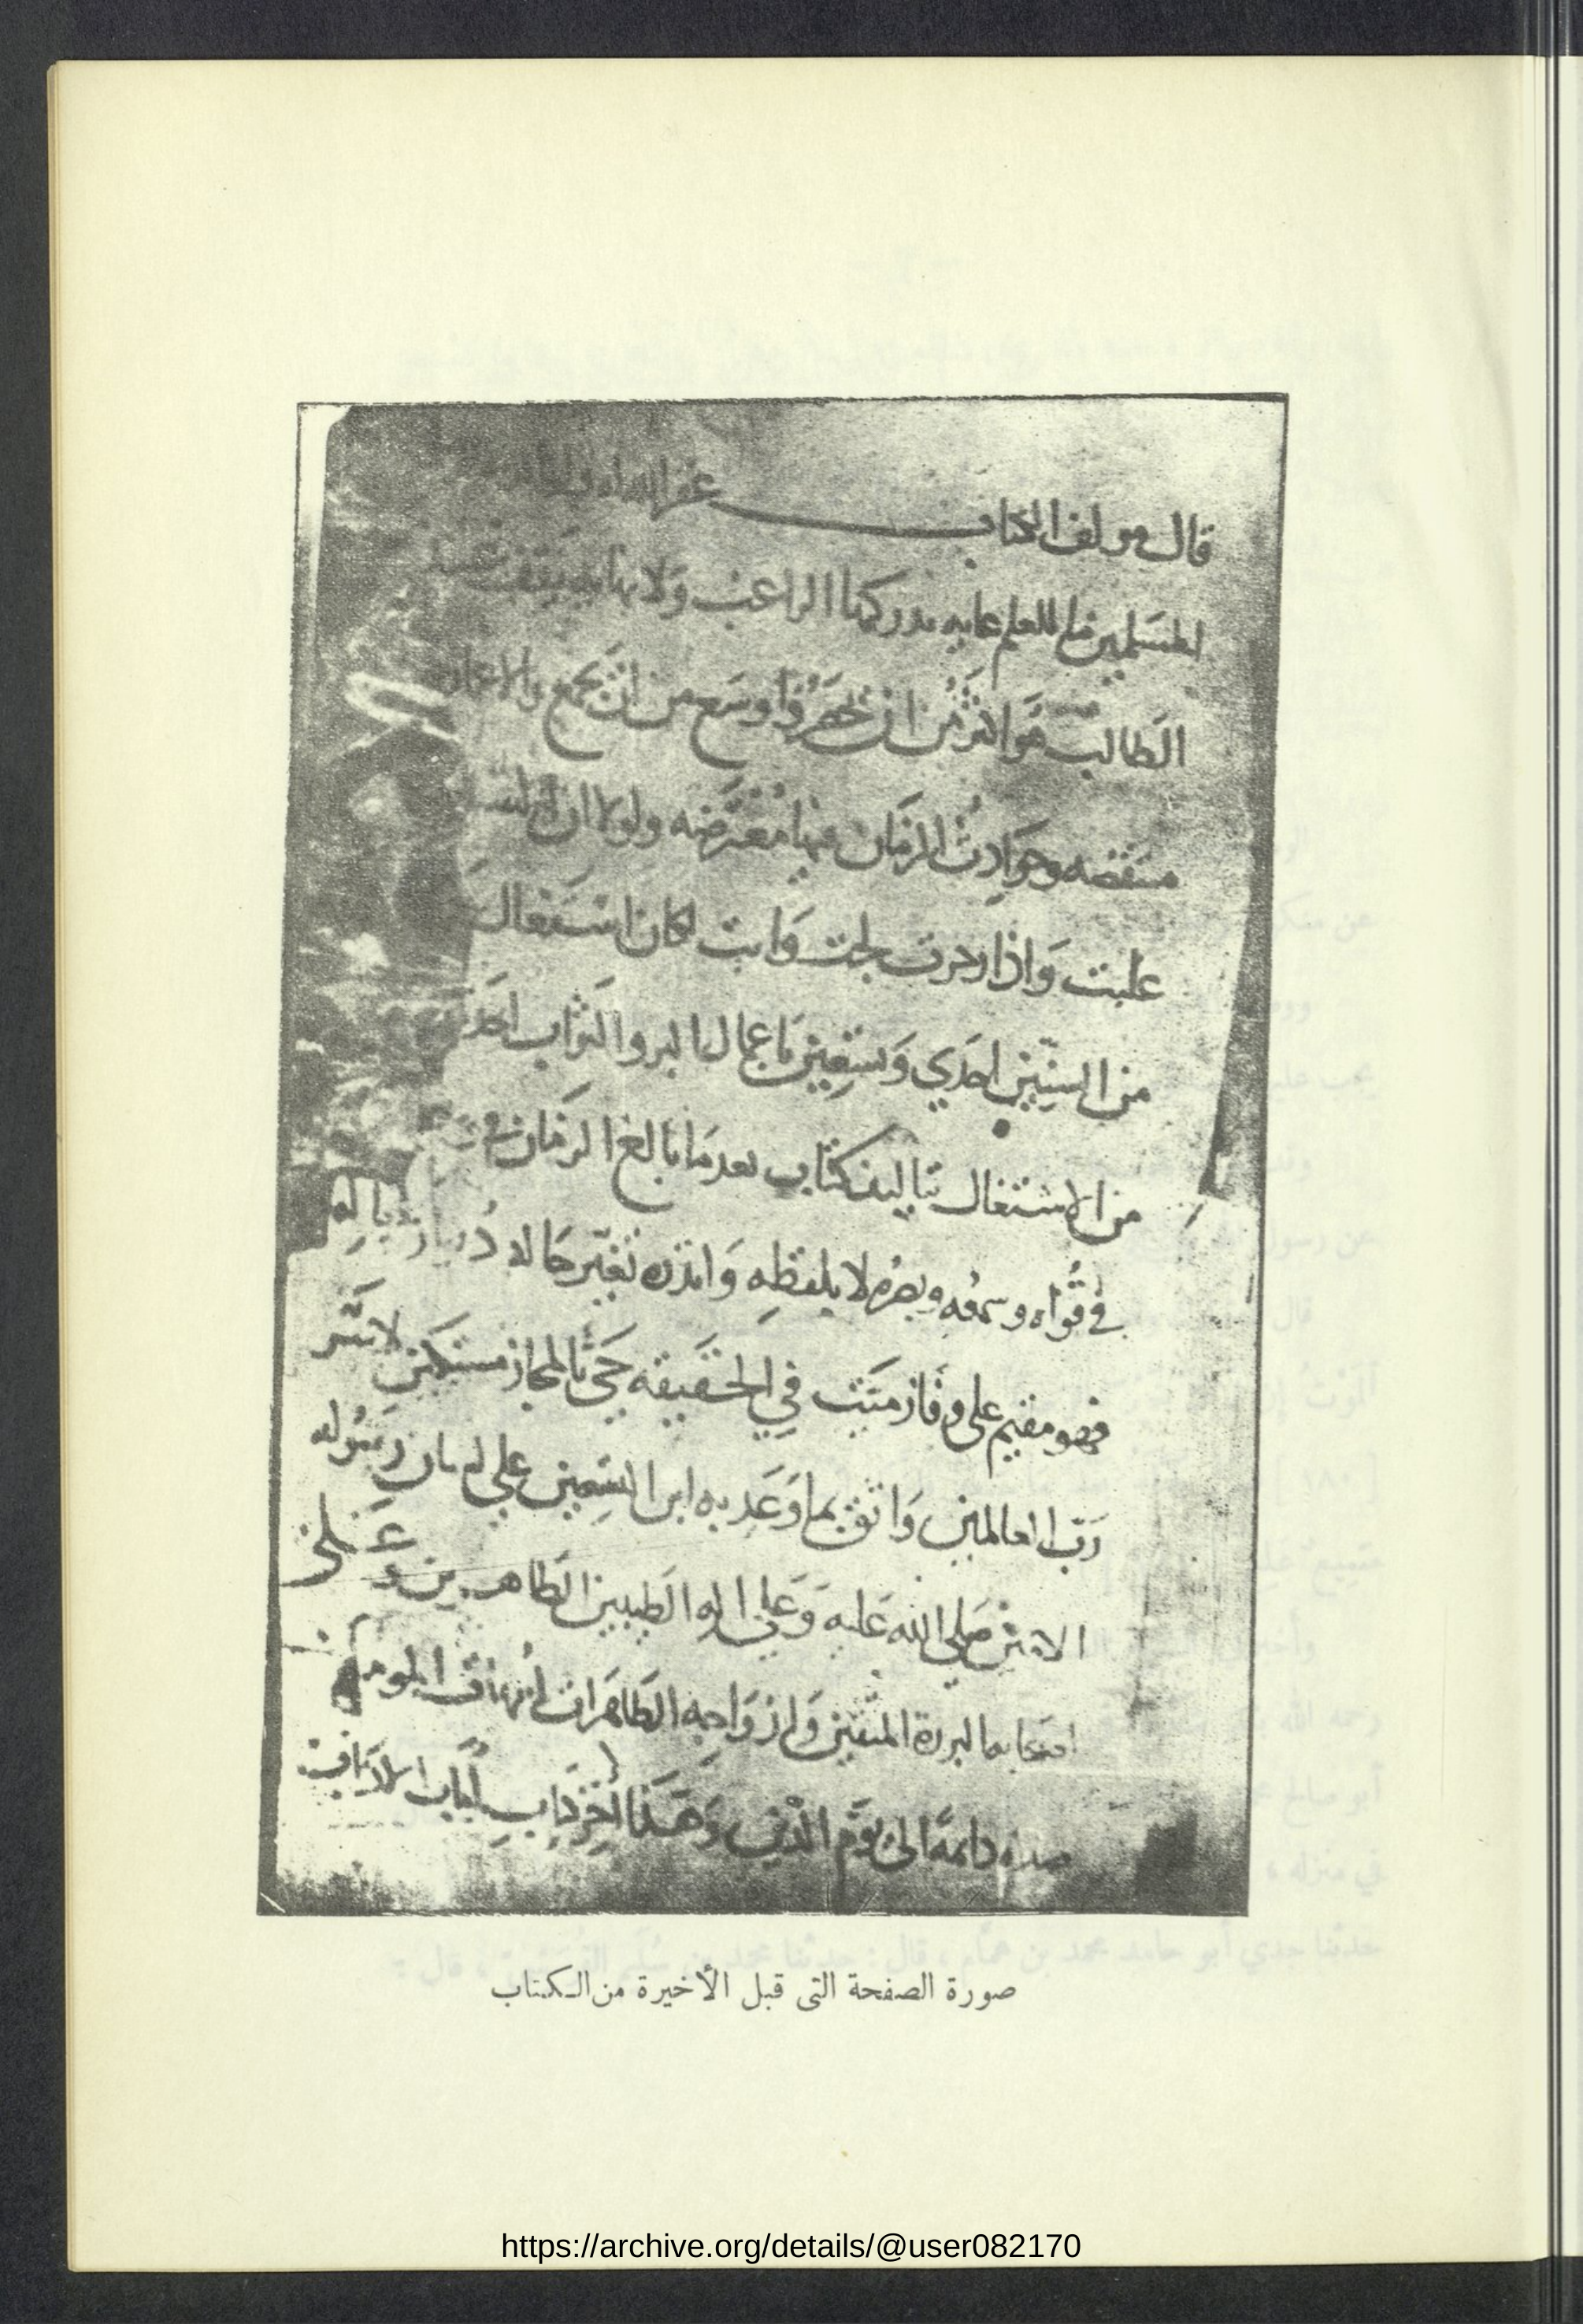 قال مولف الكتاب عفا الله
المسلمين ما للعلم غايه يدركها الراغب ولا نهايه يقف
الطالب هو اكثر من ان يحصر واوسع من ان يجمع والاعمار
منقضه وحوادث الزمان فيها معترضه ولولا ان النفس
علىت واذا زجرت لجت وابت لكان اشتغال
من السنين احدي وتسعين باعمال البر والثواب احد
من الاشتغال بتاليف كتاب بعد ما بالغ الزمان في
في قواه وسمعه وبصره لا بلفظه وانذره تغير حاله
فهو مقيم على وفاز ميت في الحقيقه حي بالمجاز مستكين لامر
رب العالمين واثق بما وعد به ابن التسعين علي لسان رسوله
الامين صلى الله عليه وعلي اله الطيبين الطاهرين وعلى
اصحابه البررة المتقين وازواجه الطاهرات امهات المومنين
صلاه دائمة الى يوم الدين وهذا اخر كتاب لباب الاداب
صورة الصفحة التى قبل الأخيرة من الكتاب
https://archive.org/details/@user082170